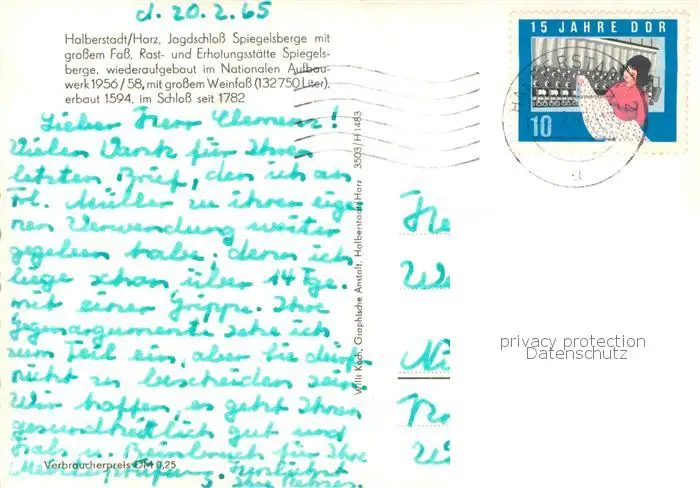 d. 20.2.65
Halberstadt/Harz, Jagdschloß Spiegelsberge mit
großem Faß, Rast- und Erholungsstätte Spiegels-
berge, wiederaufgebaut im Nationalen Aufbau-
werk 1956/58, mit großem Weinfaß (132750 Liter),
erbaut 1594, im Schloß seit 1782
Lieber Herr Clemenz!
Vielen Dank für Ihren
letzten Brief, den ich an
Frl. Müller zu ihrer eige
nen Verwendung weiter
gegeben habe, denn ich
liege schon über 14 Tge.
mit einer Grippe. Ihre
Gegenargumente sehe ich
zum Teil ein, aber Sie dürfen
nicht zu bescheiden sein.
Wir hoffen, es geht Ihnen
gesundheitlich gut und
Hals u. Beinbruch für Ihre
Meisterprüfung.
Ihre
Verbraucherpreis DM 0,25
Willi Koch, Graphische Anstalt, Halberstadt/Harz 3503/H 1483
15 JAHRE DDR
10
HALBERSTADT 2
privacy protection
Datenschutz